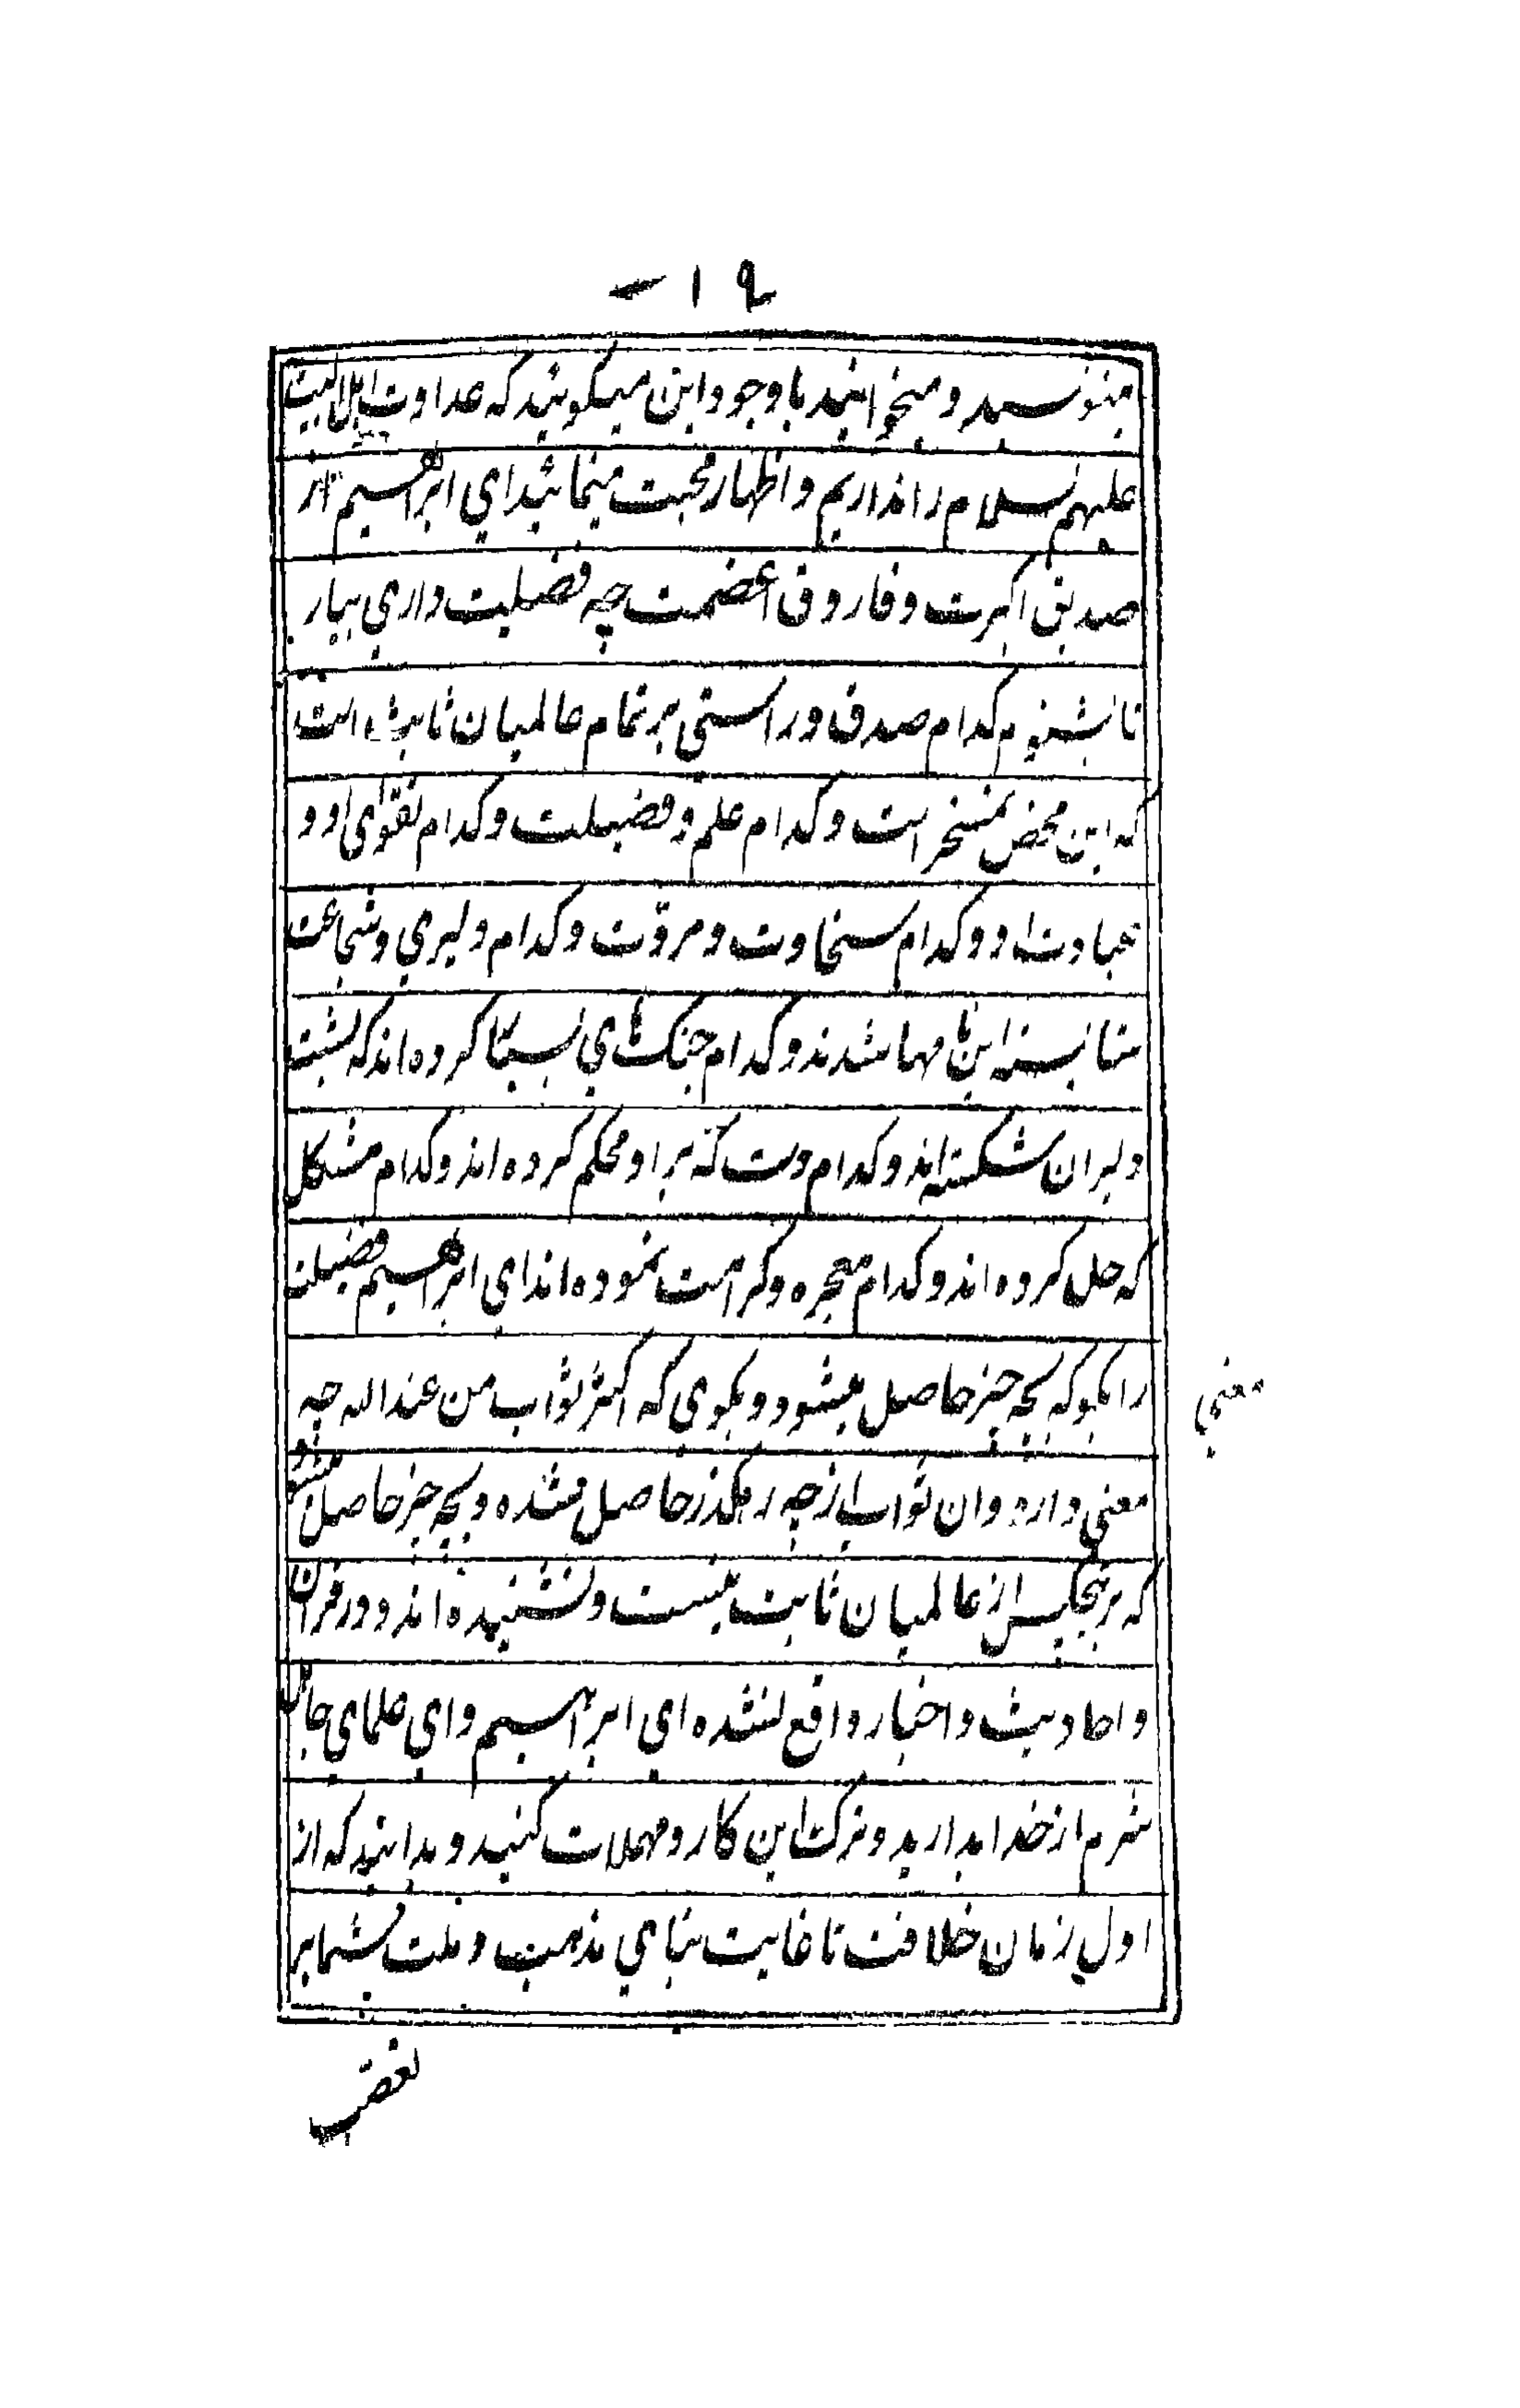 ۱۹
مینویسید و میخوانید با وجود این میکویید که عداوت اهل البیت
علیهم السلام را نداریم و اظهار محبت مینمائید ای ابراهیم از
صدیق اکبرت و فاروق اعضمت چه فضیلت داری بیار
تا بشنویم کدام صدق و راستی بر تمام عالمیان ثابت است
که این محض تمسخر است و کدام علم و فضیلت و کدام تقوای او و
عبادت او و کدام سخاوت و مروّت و کدام دلیری و شجاعت
شایسته این نامها شدند و کدام جنک های کرده اند که پشت
دلیران شکسته اند و کدام دست که بر او محکم کرده اند و کدام مشکل
که حل کرده اند و کدام معجزه و کرامت نموده اند ای ابراهیم فضیلت
را بکو که بچه چیز حاصل میشود و بکوی که اکثر ثواب من عند الله چه
معنی
معنی دارد و ان ثواب از چه رهکذر حاصل شده و بچه چیز حاصل میشود
که بر هیچکس از عالمیان ثابت نیست و نشنیده اند و در قران
و احادیث و اخبار واقع نشده ای ابراهیم و ای علمای جاهل
شرم از خدا بدارید و ترک این کار و مهملات کنید و بدانید که از
اول زمان خلافت تا غایت بنای مذهب و ملت شما بر
تعصب